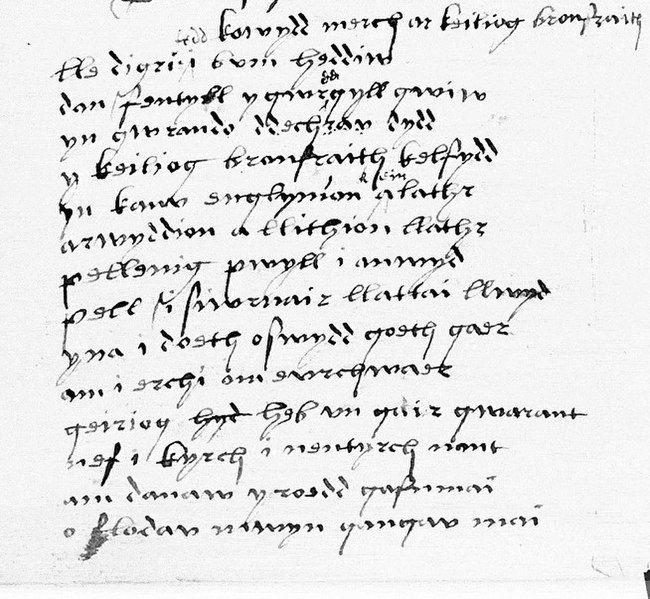 kowydd merch ar keiliog bronfraith
lle digri i bvm heddiw
dan fentyll y gwrddgyll gwiw
yn gwrando ddechrav dydd
y keiliog bronfraith kelfydd
yn kanv englynion alathr
arwyddion a llithion llathr
pellenig pwyll i anwyd
pell i siwrnair llattai llwyd
yna i doeth o swydd goeth gaer
am i erchi om evrchwaer
geiriog heb vn gair gwarant
nef i kyrch i nentyrch nant
am danaw y roedd gafnmai
o flodav mwyn gangav mai